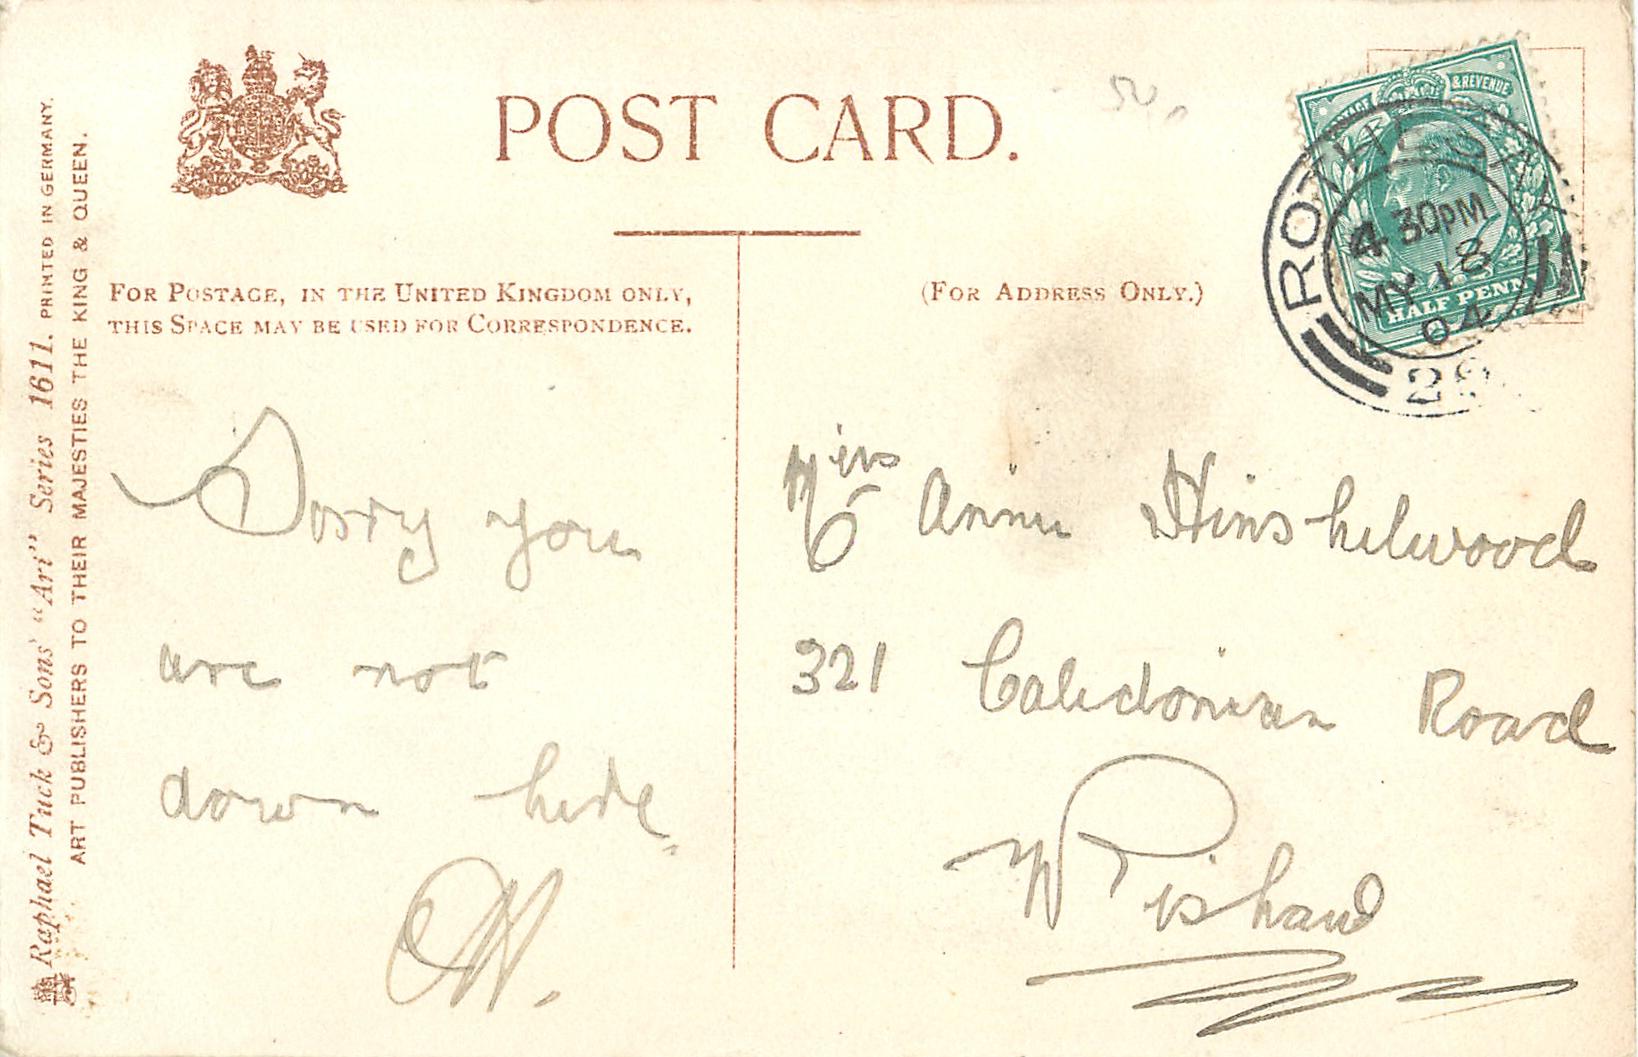 POST CARD.
54.
POSTAGE & REVENUE
ROTHESAY
4 30PM
MY 18
04
HALF PENNY
FOR POSTAGE, IN THE UNITED KINGDOM ONLY,
THIS SPACE MAY BE USED FOR CORRESPONDENCE.
(FOR ADDRESS ONLY.)
Sorry you
are not
down here.
Miss Annie Hinshelwood
321 Caledonian Road
Wishaw
Raphael Tuck & Sons' "Art" Series 1611. PRINTED IN GERMANY.
ART PUBLISHERS TO THEIR MAJESTIES THE KING & QUEEN.